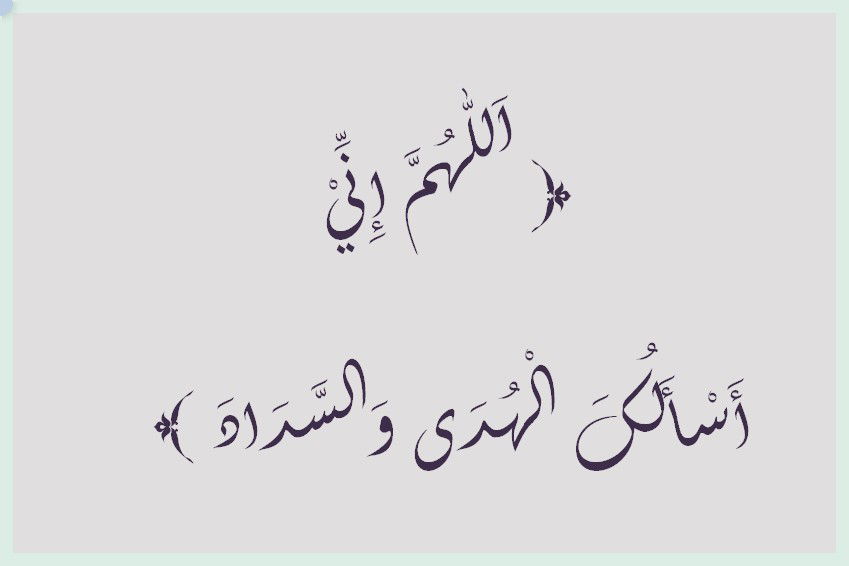 ﴿ اَللّٰهُمَّ إِنِّيْ
أَسْأَلُكَ الْهُدَى وَالسَّدَادَ ﴾